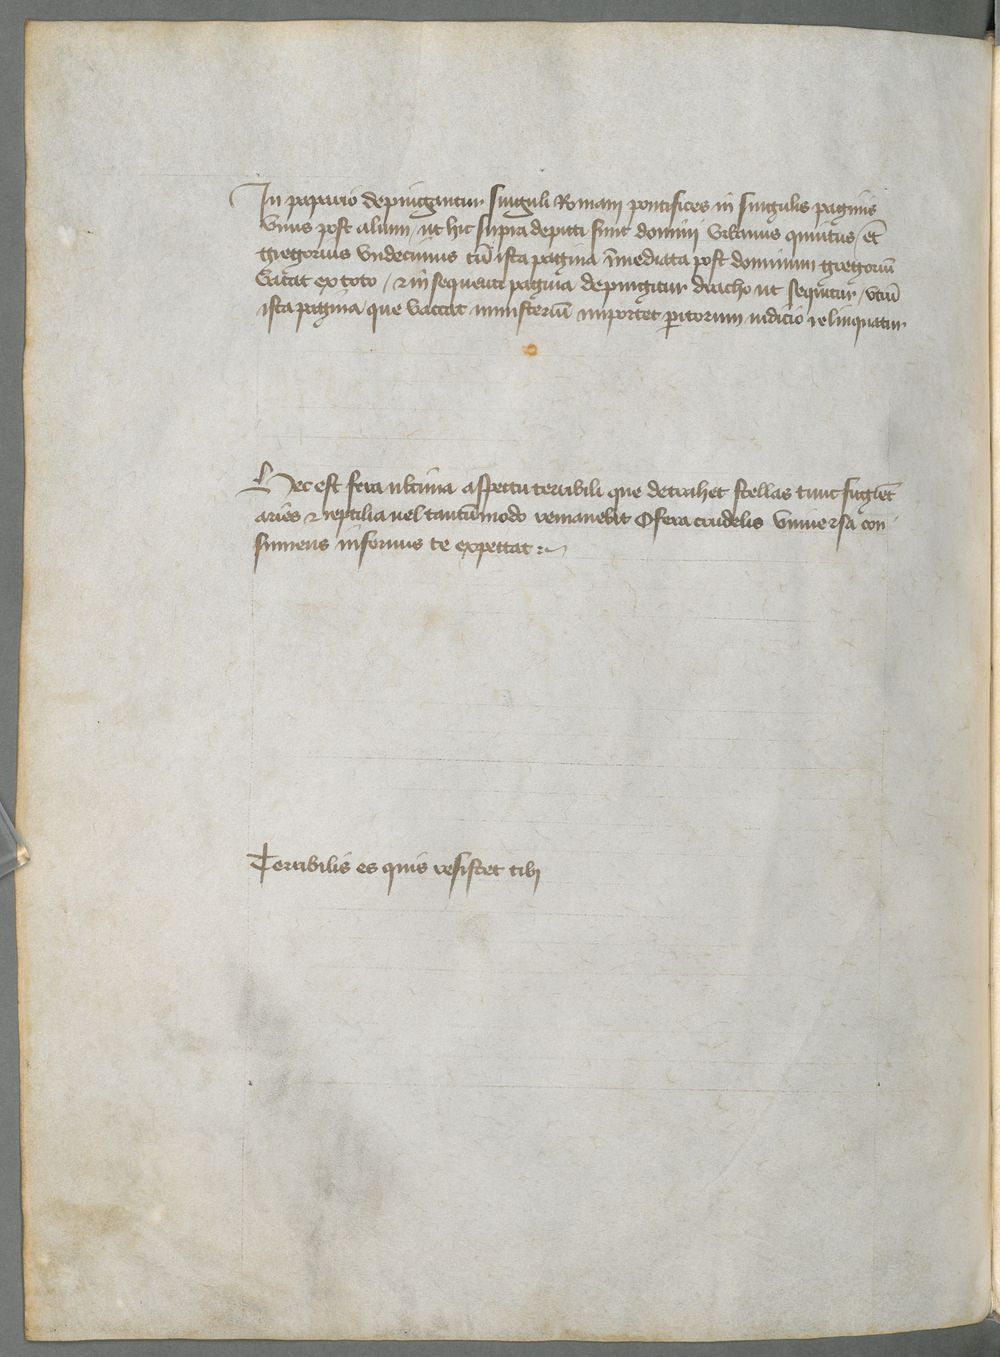 In papario depinguntur singuli Romani pontifices in singulis paginis
Unus post alium / ut hic supra depicti sunt domini Urbanus quintus / et
gregorius undecimus cū ista pagina īmediata post dominum gregoriū
Vacat ex toto / & in sequenti pagina depingitur dracho ut sequitur / utrū
ista pagina / que vaccat misteriū importet peritorum iudicio relinquatur
Hec est fera ultima aspectu terribili que detrahet stellas tunc fugiēt
aues & reptilia vel tantūmodo remanebūt O fera crudelis universa con
sumens infernus te expectat :~
Terribilis es quis resistet tibi